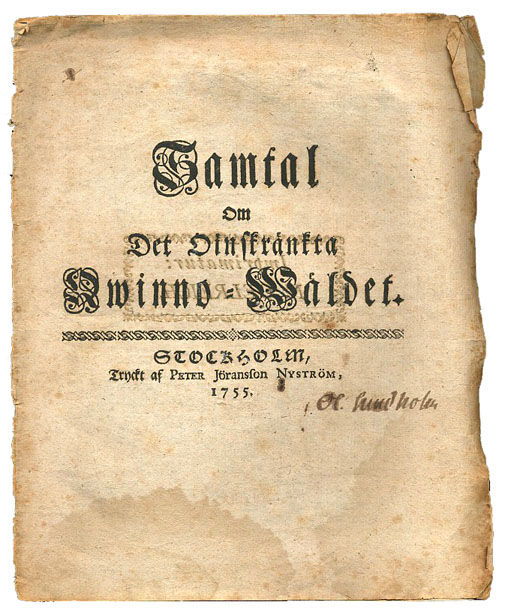 Samtal
Om
Det Oinskränkta
Qwinno-Wäldet.
STOCKHOLM,
Tryckt af PETER Jöransson NYSTRÖM,
1755.
Imprimatur.